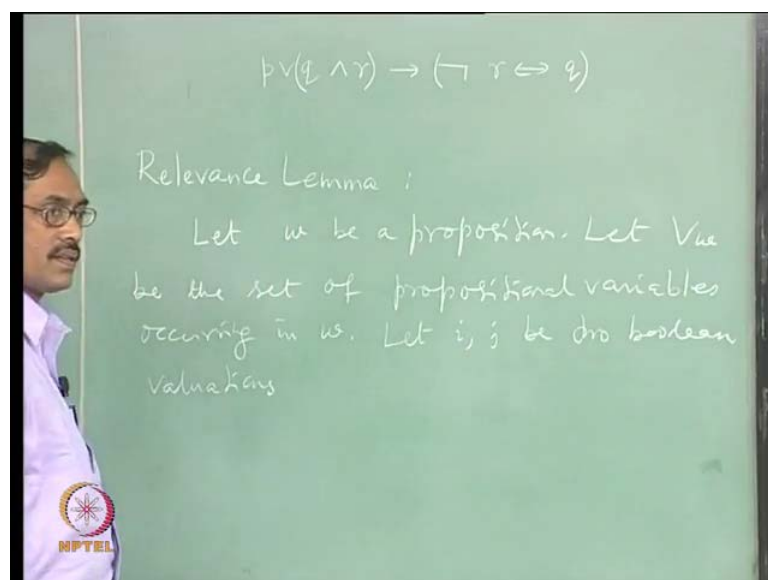 p∨(q ∧ r) → (¬ r ⇔ q)
Relevance Lemma :
Let w be a proposition. Let Vw
be the set of propositional variables
occurring in w. Let i, j be two boolean
valuations
NPTEL